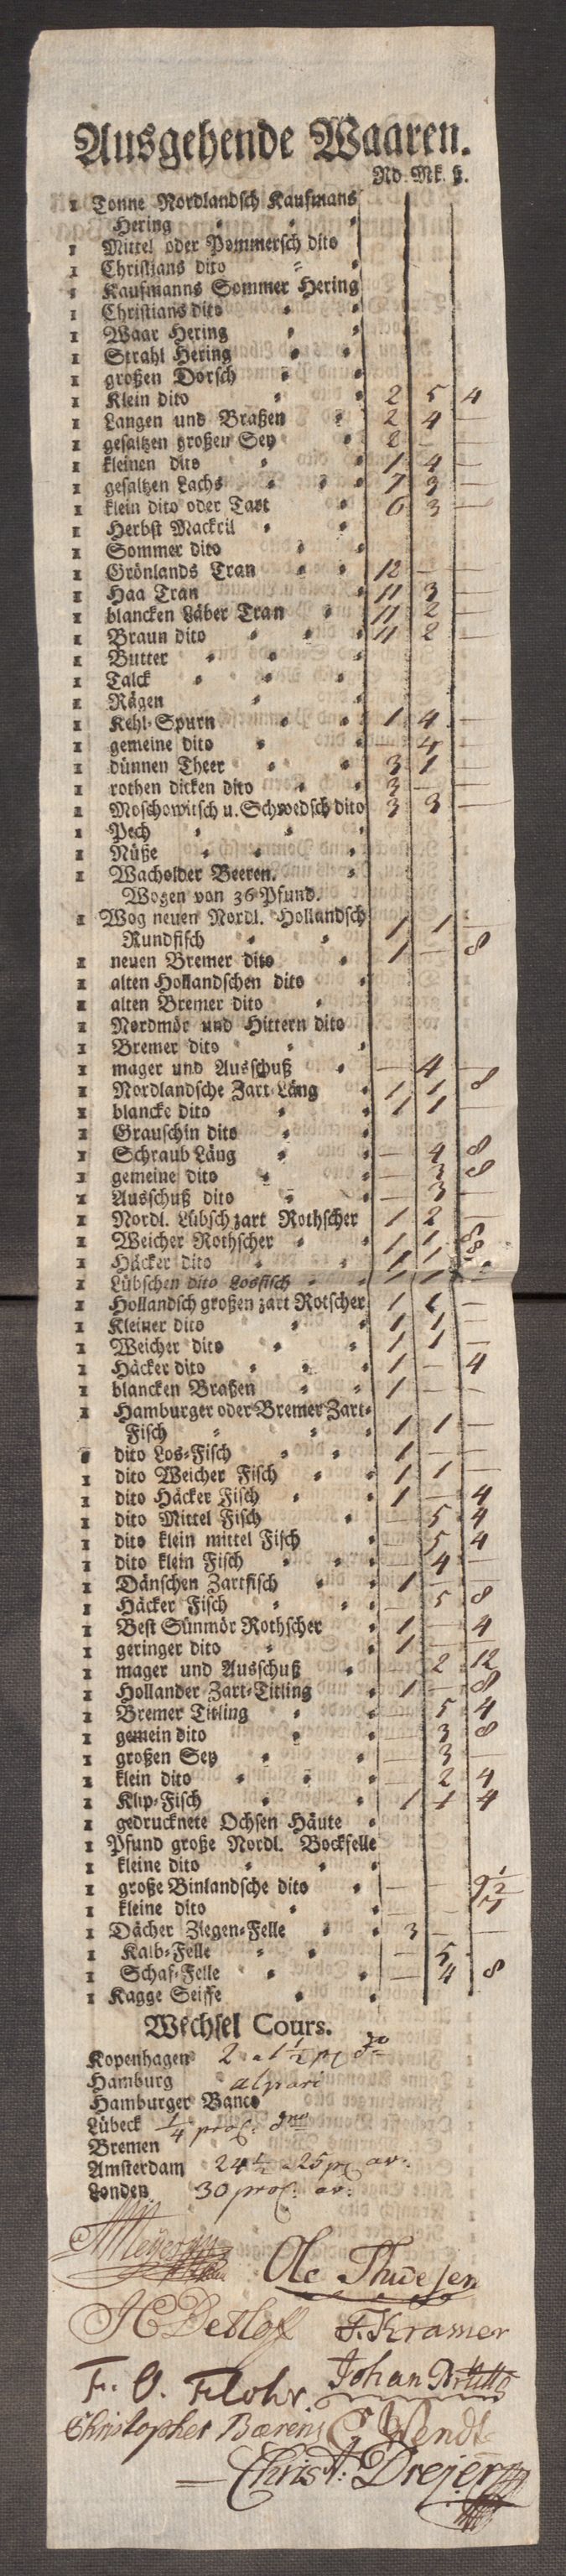 Ausgehende Waaren.
Rd. Mk. ß.
1 Tonne Nordlandsch Kaufmans
Hering
1 Mittel oder Pommersch dito
1 Christians dito
1 Kaufmanns Sommer Hering
1 Christians dito
1 Waar Hering
1 Strahl Hering
1 großen Dorsch
1 Klein dito 2 5 4
1 Langen und Braßen 2 4 —
1 gesaltzen großen Sey 2 — —
1 kleinen dito 1 4 —
1 gesaltzen Lachs 7 3 —
1 klein dito oder Tart 6 3 —
1 Herbst Mackril
1 Sommer dito
1 Grönlands Tran 12 — —
1 Haa Tran 11 3 —
1 blancken Läber Tran 11 2 —
1 Braun dito 11 2 —
1 Butter
1 Talck
1 Rägen
1 Kehl-Spurn 1 4 —
1 gemeine dito 4 —
1 dünnen Theer 3 1 —
1 rothen dicken dito 3 — —
1 Moschowitsch u. Schwedsch dito 3 3 —
1 Pech
1 Nüße
1 Wacholder Beeren.
Wogen von 36 Pfund.
1 Wog neuen Nordl. Hollandsch
Rundfisch 1 1 —
1 neuen Bremer dito 1 — 8
1 alten Hollandschen dito
1 alten Bremer dito
1 Nordmör und Hittern dito
1 Bremer dito
1 mager und Ausschuß — 4 —
1 Nordlandsche Zart-Läng 1 1 8
1 blancke dito 1 1 —
1 Grauschin dito
1 Schraub Läng — 4 8
1 gemeine dito — 3 8
1 Ausschuß dito — 3 —
1 Nordl. Lübsch zart Rothscher 1 2 —
1 Weicher Rothscher 1 1 8
1 Häcker dito 1 1
1 Lübschen dito Losfisch 1 1
1 Hollandsch großen zart Rotscher 1 —
1 Kleiner dito 1 1 —
1 Weicher dito 1 1 —
1 Häcker dito 1 — 4
1 blancken Braßen 1 — —
1 Hamburger oder Bremer Zart-
Fisch 1 1 —
1 dito Los-Fisch 1 — —
1 dito Weicher Fisch 1 1 —
1 dito Häcker Fisch 1 — 4
1 dito Mittel Fisch — 5 4
1 dito klein mittel Fisch — 5 4
1 dito klein Fisch — 4 —
1 Dänschen Zartfisch 1 — —
1 Häcker Fisch — 5 8
1 Best Sünmör Rothscher 1 — 4
1 geringer dito 1 — —
1 mager und Ausschuß 2 12
1 Hollander Zart-Titling 1 — 8
1 Bremer Titling — 5 4
1 gemein dito — 3 8
1 großen Sey — 3 —
1 klein dito — 2 4
1 Klip-Fisch 1 1 4
1 gedrucknete Ochsen Häute
1 Pfund große Nordl. Bockfelle
1 kleine dito
1 große Binlandsche dito — — 9 1/2
1 kleine dito — — 7
1 Dächer Ziegen-Felle 3 — —
1 Kalb-Felle — 5
1 Schaf-Felle — 4 8
1 Kagge Seiffe
Wechsel Cours.
Kopenhagen 2 a 1 1/2 p
Hamburg al pari
Hamburger Banco
Lübeck 1/4 proC.
Bremen
Amsterdam 24 1/2 a 25 pC av:
Londen 30 proC: av:
Ole Thuesen
HDetloff J. Kramer
F. O. Flohr Johan
Christopher Bærens C Wendt
Christ: Drejer